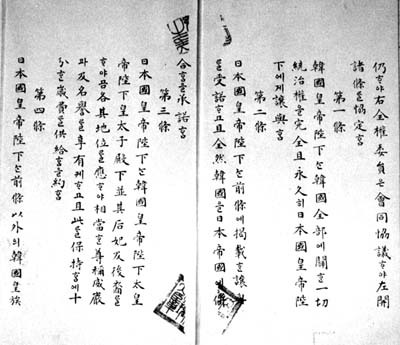 仍하야右全權委員은會同協議하야左開
諸條를協定홈
第一條
韓國皇帝陛下는韓國全部에關한一切
統治權을完全且永久히日本國皇帝陛
下에게讓與홈
第二條
日本國皇帝陛下는前條에揭載한讓與
를受諾하고且全然韓國을日本帝國에併
合홈을承諾홈
第三條
日本國皇帝陛下는韓國皇帝陛下太皇
帝陛下皇太子殿下並其后妃及後裔로
하야곰各其地位를應하야相當한尊稱威嚴
과及名譽를享有케하고且此를保持홈에十
分한歲費를供給홈을約홈
第四條
日本國皇帝陛下는前條以外의韓國皇族